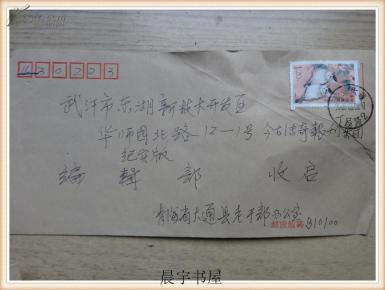 430223
武汉市东湖新技术开发区
华师园北路-12-1号 今古传奇报刊集团
纪实版
编 辑 部 收启
青海省大通县老干部办公室
邮政编码 810100
晨宇书屋